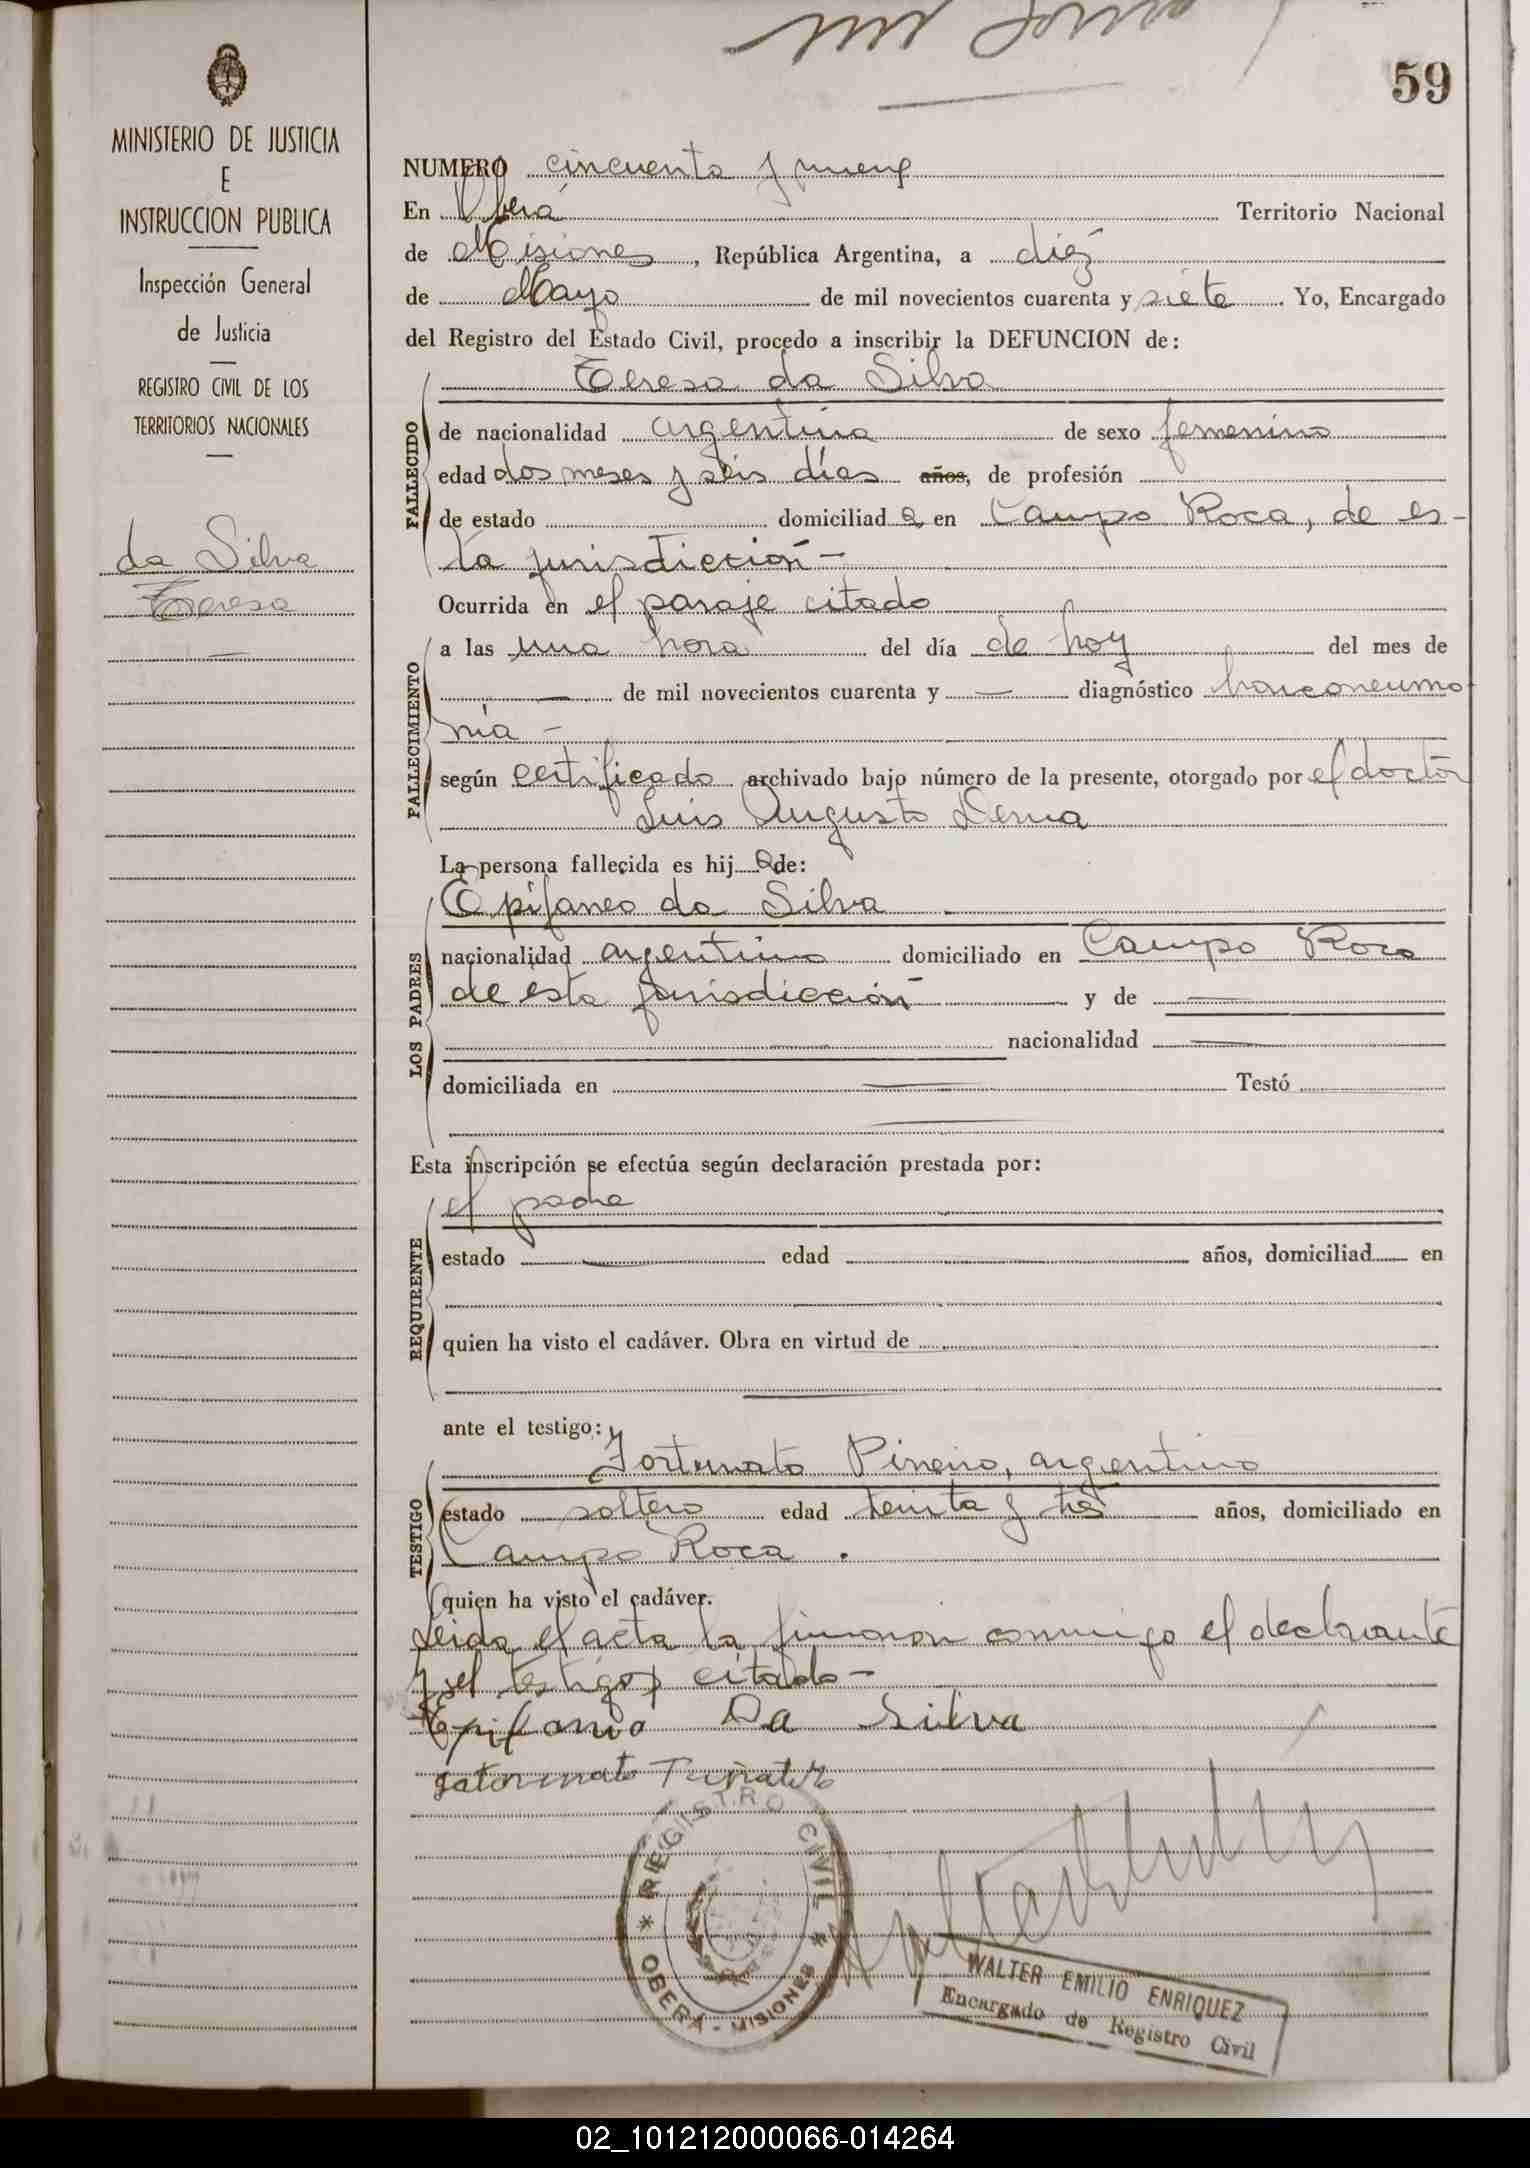 59
MINISTERIO DE JUSTICIA
E
INSTRUCCION PUBLICA
Inspección General
de Justicia
REGISTRO CIVIL DE LOS
TERRITORIOS NACIONALES
da Silva
Teresa
NUMERO cincuenta y nueve
En Oberá Territorio Nacional
de Misiones, República Argentina, a diez
de Mayo de mil novecientos cuarenta y siete. Yo, Encargado
del Registro del Estado Civil, procedo a inscribir la DEFUNCION de:
Teresa da Silva
FALLECIDO
de nacionalidad argentina de sexo femenino
edad dos meses y seis días años, de profesión
de estado domiciliad a en Campo Roca, de es-
ta jurisdicción-
Ocurrida en el paraje citado
FALLECIMIENTO
a las una hora del día de hoy del mes de
— de mil novecientos cuarenta y — diagnóstico bronconeumo
nía -
según certificado archivado bajo número de la presente, otorgado por el doctor
Luis Augusto Derna
La persona fallecida es hij a de:
LOS PADRES
Epifaneo da Silva
nacionalidad argentino domiciliado en Campo Roca
de esta jurisdicción y de —
— nacionalidad —
domiciliada en — Testó
—
Esta inscripción se efectúa según declaración prestada por:
REQUIRENTE
el padre
estado — edad — años, domiciliad en
—
quien ha visto el cadáver. Obra en virtud de
—
ante el testigo:
TESTIGO
Fortunato Pineiro, argentino
estado soltero edad treinta y tres años, domiciliado en
Campo Roca .
quien ha visto el cadáver.
Leida el acta la firmaron conmigo el declarante
y el testigo citado-
Epifanio Da Silva
REGISTRO CIVIL
* OBERÁ - MISIONES *
WALTER EMILIO ENRIQUEZ
Encargado de Registro Civil
02_101212000066-014264